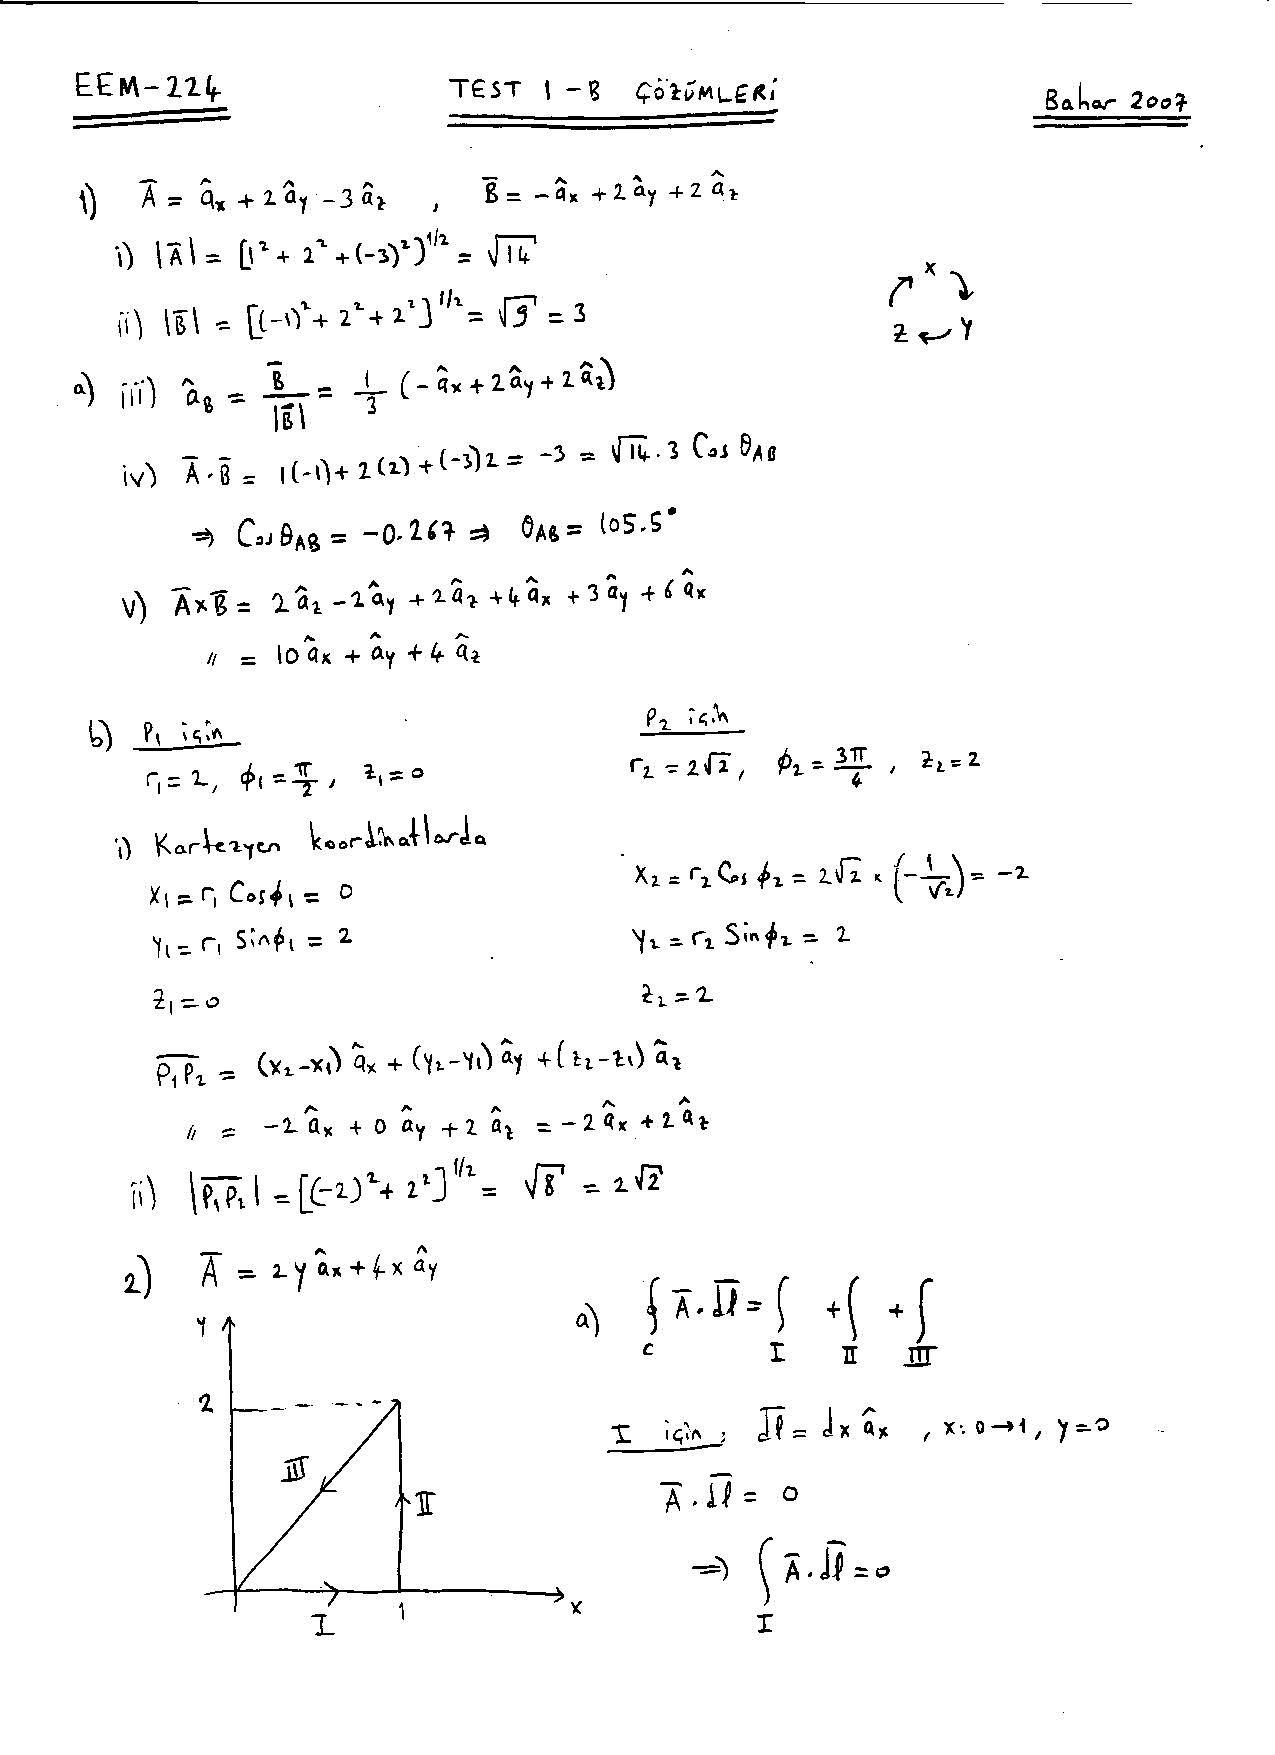 EEM-224 TEST 1-B ÇÖZÜMLERİ Bahar 2007
1) A̅ = âx + 2ây - 3âz , B̅ = -âx + 2ây + 2âz
i) |A̅| = [1² + 2² + (-3)²]^1/2 = √14
ii) |B̅| = [(-1)² + 2² + 2²]^1/2 = √9 = 3
x
z y
a) iii) âB = B̅/|B̅| = 1/3 (-âx + 2ây + 2âz)
iv) A̅·B̅ = 1(-1) + 2(2) + (-3)2 = -3 = √14 . 3 Cos θAB
⇒ Cos θAB = -0.267 ⇒ θAB = 105.5°
v) A̅×B̅ = 2âz - 2ây + 2âz + 4âx + 3ây + 6âx
" = 10âx + ây + 4âz
b) P1 için
r1 = 2, ϕ1 = π/2, z1 = 0
i) Kartezyen koordinatlarda
x1 = r1 Cosϕ1 = 0
y1 = r1 Sinϕ1 = 2
z1 = 0
P2 için
r2 = 2√2, ϕ2 = 3π/4, z2 = 2
x2 = r2 Cos ϕ2 = 2√2 × (-1/√2) = -2
y2 = r2 Sin ϕ2 = 2
z2 = 2
P1P2 = (x2-x1) âx + (y2-y1) ây + (z2-z1) âz
" = -2âx + 0ây + 2âz = -2âx + 2âz
ii) |P1P2| = [(-2)² + 2²]^1/2 = √8 = 2√2
2) A̅ = 2yâx + 4xây
y
2
III
II
I
1
x
a) ∮c A̅·dl = ∫I + ∫II + ∫III
I için; dl = dx âx , x: 0→1, y=0
A̅·dl = 0
⇒ ∫I A̅·dl = 0